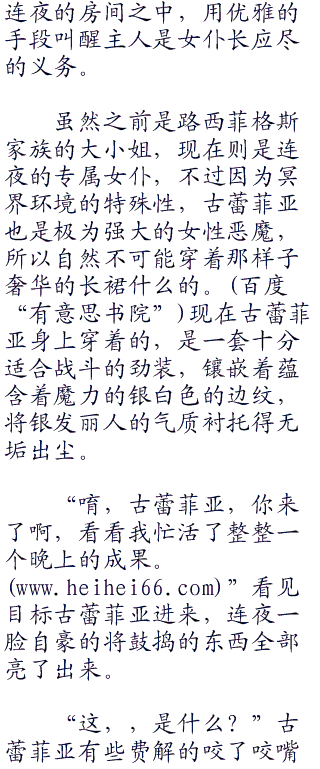 连夜的房间之中，用优雅的
手段叫醒主人是女仆长应尽
的义务。
虽然之前是路西菲格斯
家族的大小姐，现在则是连
夜的专属女仆，不过因为冥
界环境的特殊性，古蕾菲亚
也是极为强大的女性恶魔，
所以自然不可能穿着那样子
奢华的长裙什么的。(百度
“有意思书院”)现在古蕾菲
亚身上穿着的，是一套十分
适合战斗的劲装，镶嵌着蕴
含着魔力的银白色的边纹，
将银发丽人的气质衬托得无
垢出尘。
“唷，古蕾菲亚，你来
了啊，看看我忙活了整整一
个晚上的成果。
(www.heihei66.com)”看见
目标古蕾菲亚进来，连夜一
脸自豪的将鼓捣的东西全部
亮了出来。
“这，，是什么？”古
蕾菲亚有些费解的咬了咬嘴